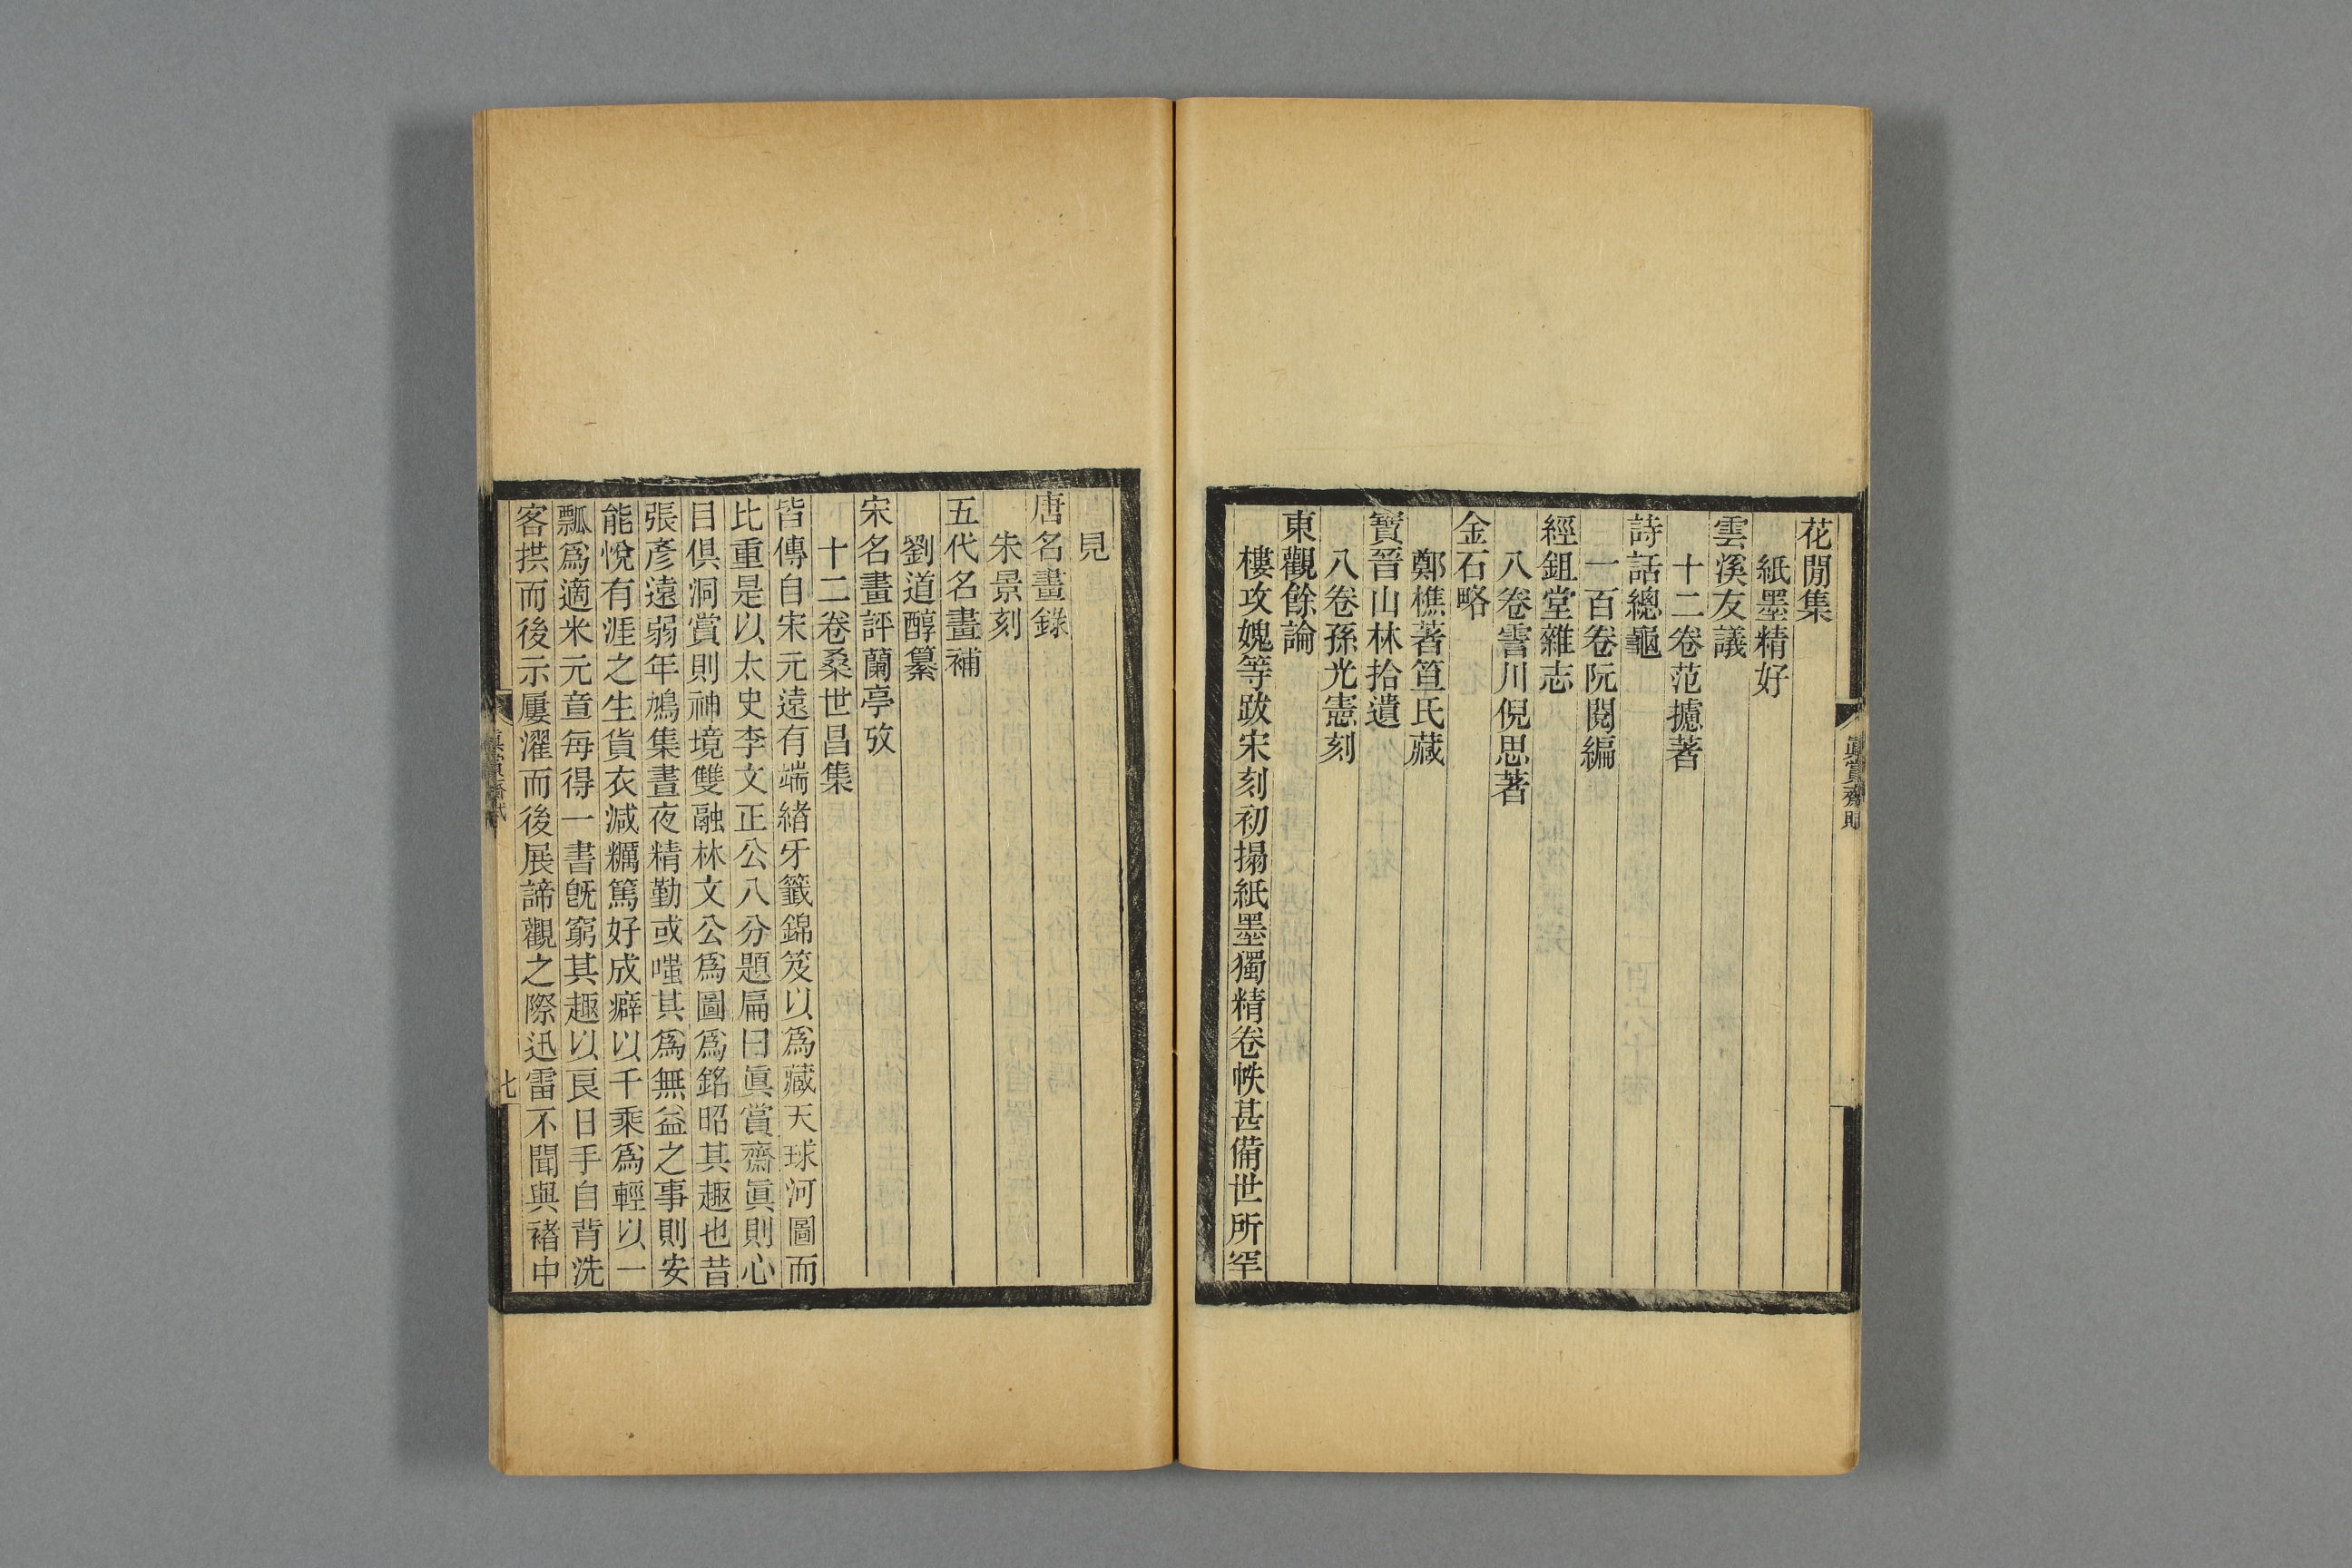 花閒集
紙墨精好
雲溪友議
十二卷范攄著
詩話總龜
一百卷阮閱編
經鉏堂雜志
八卷霅川倪思著
金石略
鄭樵著笪氏藏
寶晉山林拾遺
八卷孫光憲刻
東觀餘論
樓攻媿等跋宋刻初搨紙墨獨精卷帙甚備世所罕
見
唐名畫錄
朱景刻
五代名畫補
劉道醇纂
宋名畫評蘭亭攷
十二卷桑世昌集
皆傳自宋元遠有端緒牙籤錦笈以爲藏天球河圖而
比重是以太史李文正公八分題扁曰眞賞齋眞則心
目俱洞賞則神境雙融林文公爲圖爲銘昭其趣也昔
張彥遠弱年鳩集晝夜精勤或嗤其爲無益之事則安
能悅有涯之生貨衣減糲篤好成癖以千乘爲輕以一
瓢爲適米元章每得一書旣窮其趣以良日手自背洗
客拱而後示屢濯而後展諦觀之際迅雷不聞與褚中
眞賞齋賦
七